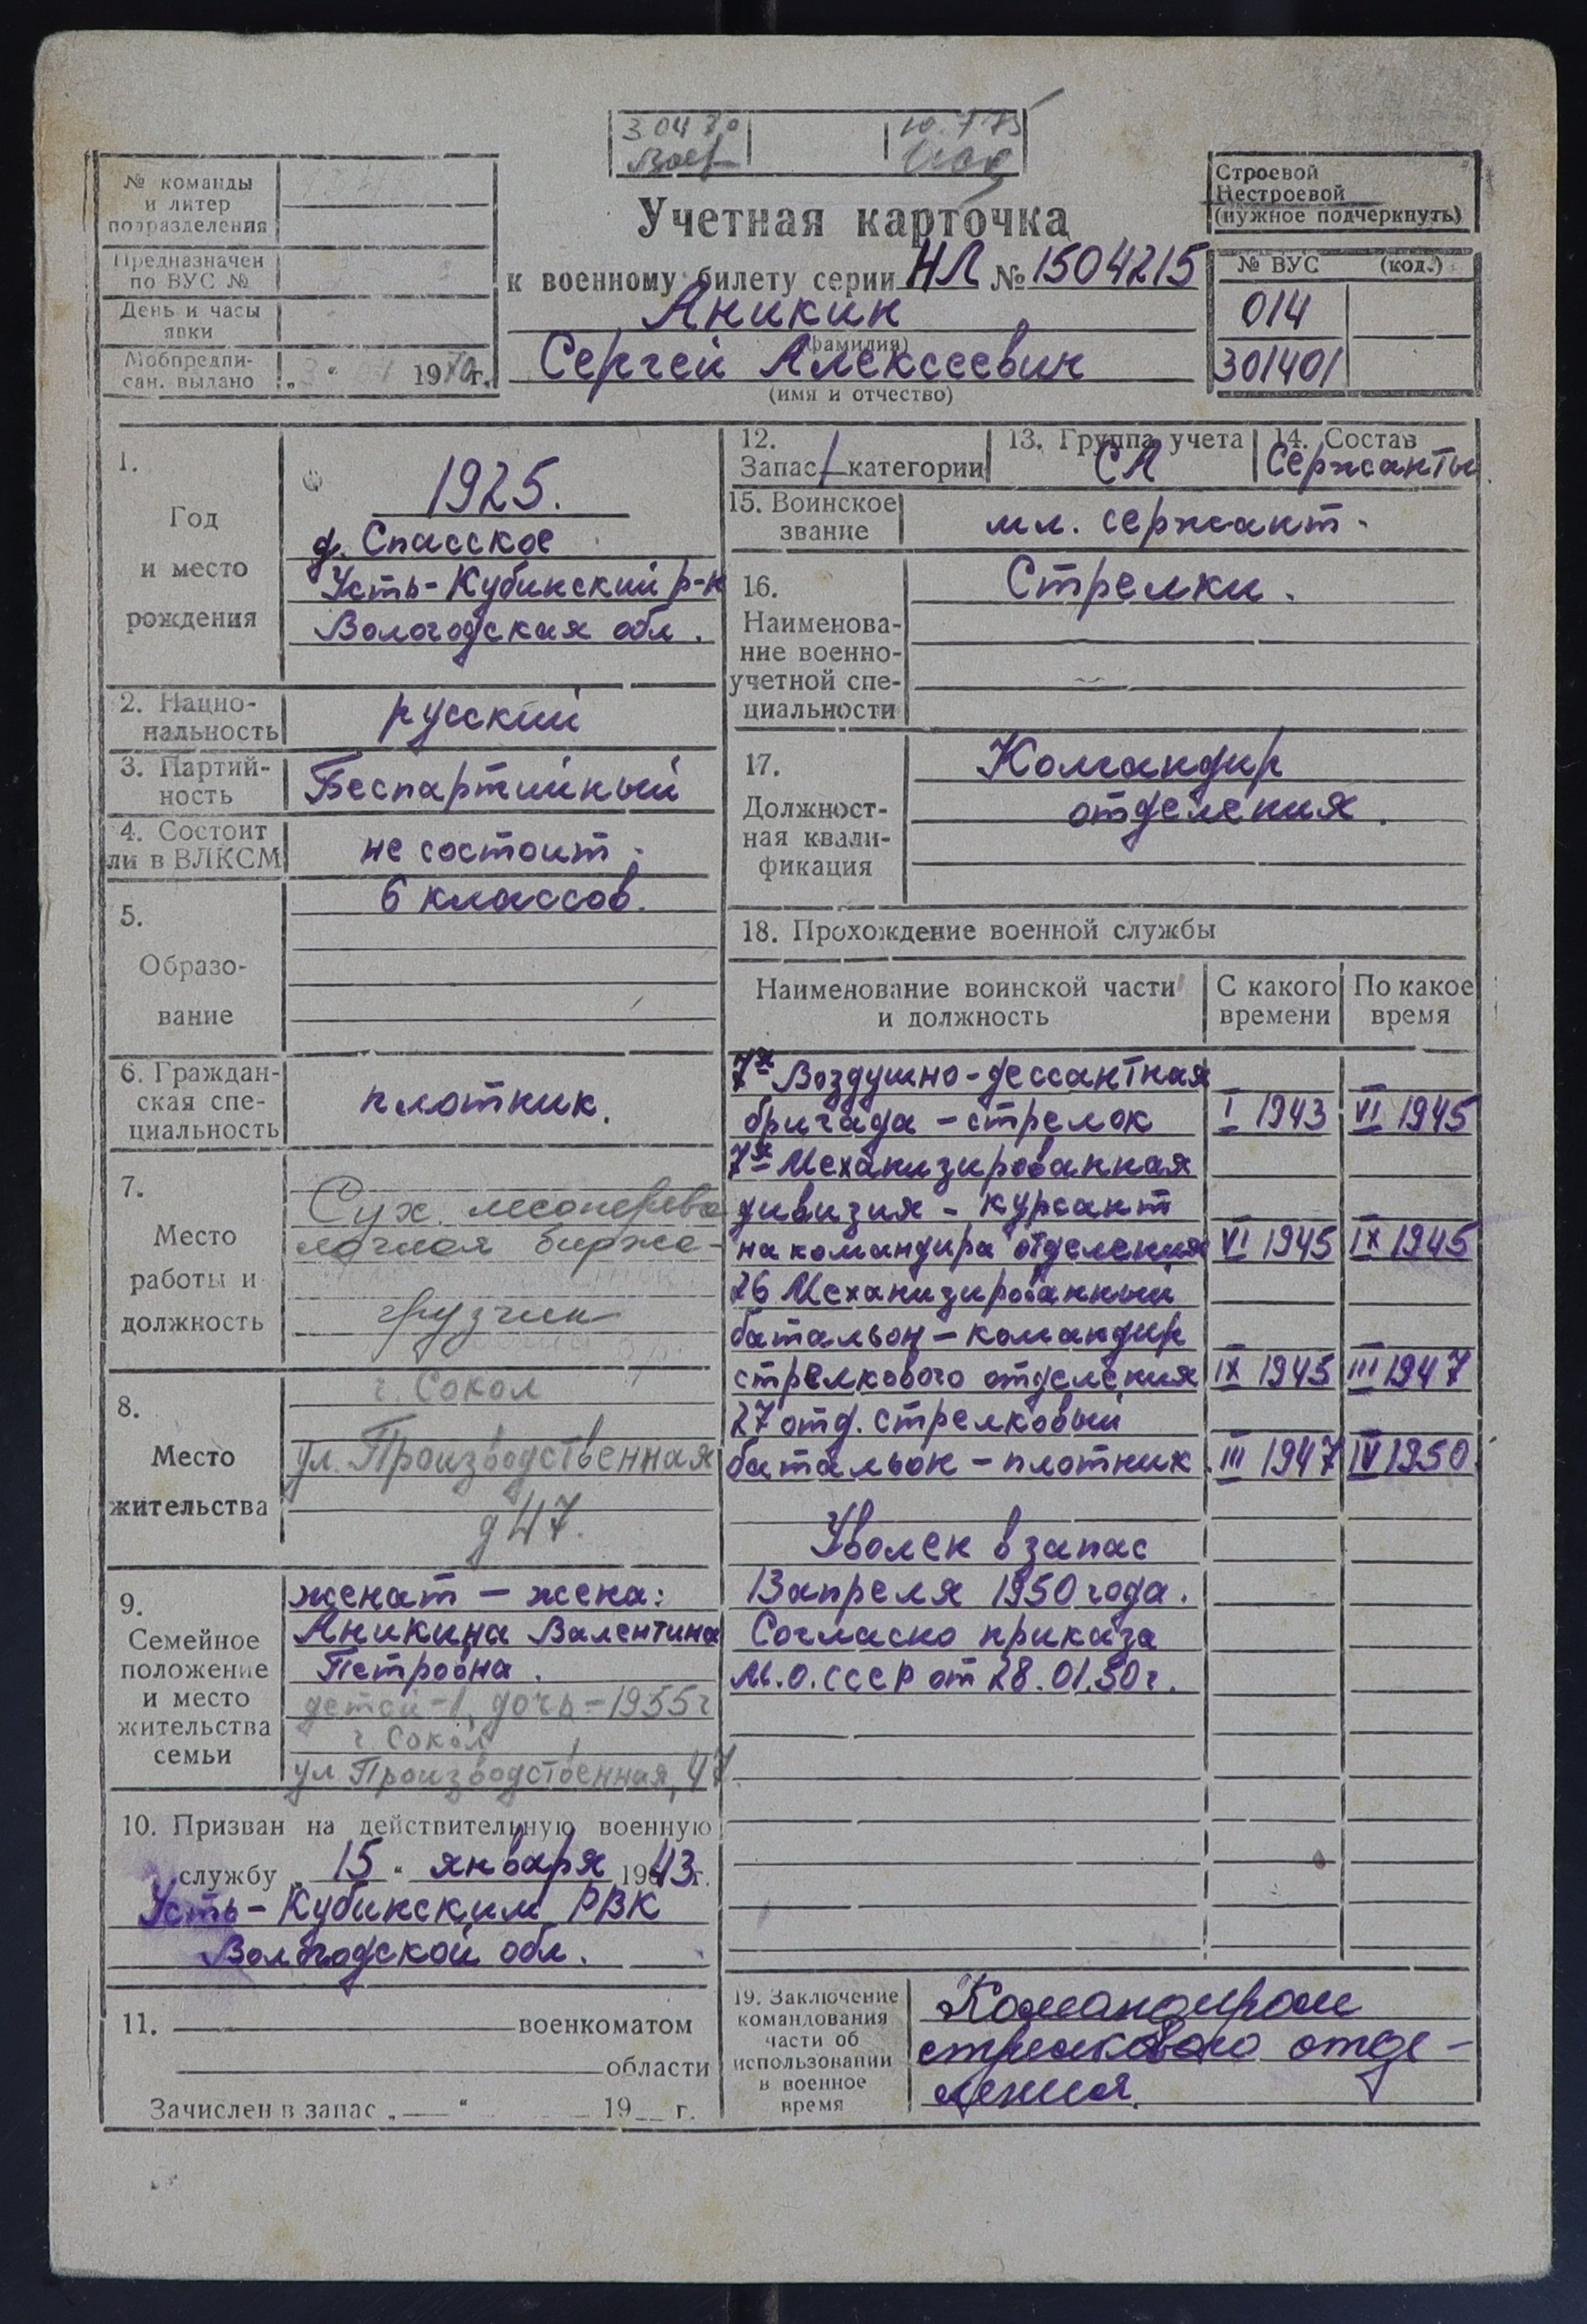 3 04 70
10.7 75
№ команды
и литер
подразделения
Предназначен
по ВУС №
День и часы
явки
Мобпредпи-
сан. выдано „3" 1970 г.
Строевой
Нестроевой
(нужное подчеркнуть)
Учетная карточка
к военному билету серии НЛ № 1504215
Аникин
(фамилия)
Сергей Алексеевич
(имя и отчество)
№ ВУС (код.)
014
301401
1.
Год
и место
рождения
1925.
д. Спасское
Усть-Кубинский р-н
Вологодская обл.
2. Нацио-
нальность
русский
3. Партий-
ность
Беспартийный
4. Состоит
ли в ВЛКСМ
не состоит.
5.
Образо-
вание
6 классов.
6. Граждан-
ская спе-
циальность
плотник.
7.
Место
работы и
должность
Сух. лесоперева
лочная биржа-
грузчик
8.
Место
жительства
г. Сокол
ул. Производственная
д 47.
9.
Семейное
положение
и место
жительства
семьи
женат – жена:
Аникина Валентина
Петровна.
детей-1, дочь-1955г
г. Сокол,
ул Производственная, 47.
10. Призван на действительную военную
службу „15" января 1943г.
Усть-Кубинским РВК
Вологодской обл.
11. военкоматом
области
Зачислен в запас „—" 19 г.
12.
Запас 1 категории
13. Группа учета
СА
14. Состав
Сержанты
15. Воинское
звание
мл. сержант.
16.
Наименова-
ние военно-
учетной спе-
циальности
Стрелки.
17.
Должност-
ная квали-
фикация
Командир
отделения.
18. Прохождение военной службы
Наименование воинской части
и должность
С какого
времени
По какое
время
7я Воздушно-дессантная
бригада – стрелок I 1943 VI 1945
7я Механизированная
дивизия – курсант
на командира отделения VI 1945 IX 1945
26 Механизированный
батальон – командир
стрелкового отделения IX 1945 III 1947
27 отд. стрелковый
батальон – плотник III 1947 IV 1950.
Уволен в запас
13 апреля 1950 года.
Согласно приказа
М.О. СССР от 28.01.50г.
19. Заключение
командования
части об
использовании
в военное
время
Командиром
стрелкового отде-
ления.